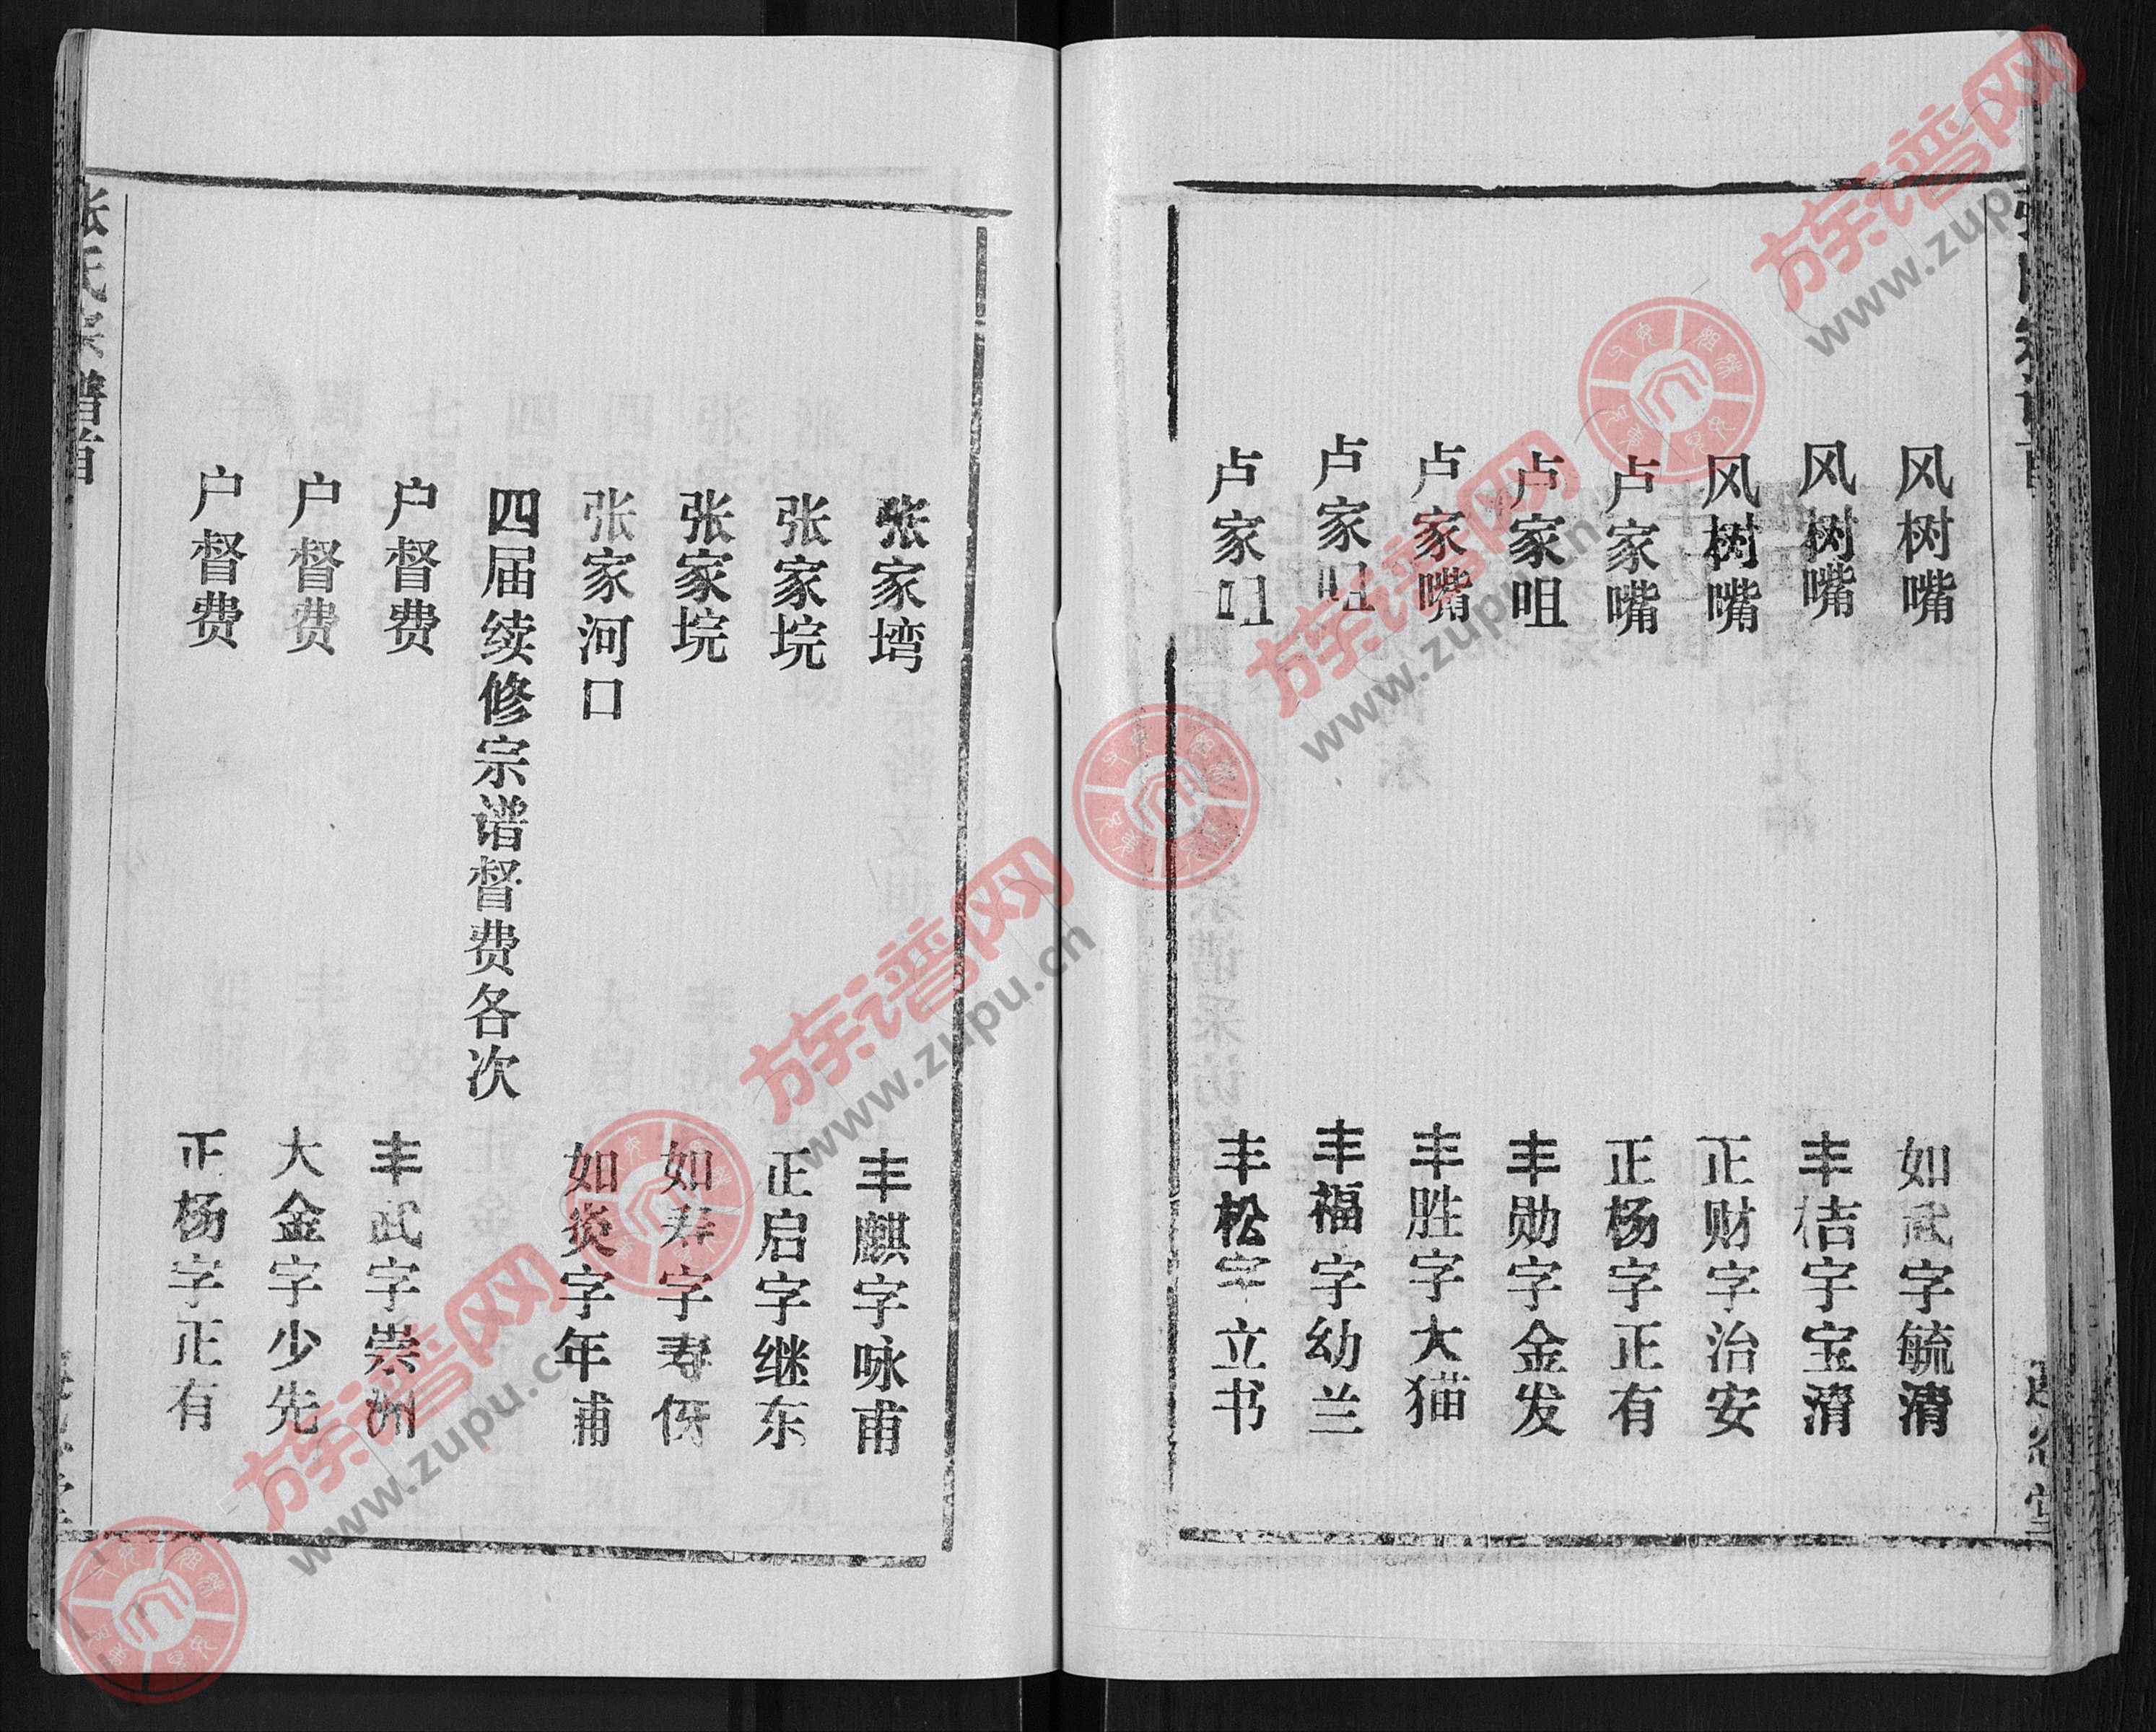 风树嘴 如武字毓清
风树嘴 丰桔字宝清
风树嘴 正财字治安
卢家嘴 正杨字正有
卢家咀 丰勋字金发
卢家嘴 丰胜字大猫
卢家咀 丰福字幼兰
卢家咀 丰松字立书
张家塆 丰麒字咏甫
张家垸 正启字继东
张家垸 如寿字寿伢
张家河口 如炎字年浦
四届续修宗谱督费各次
户督费 丰武字崇洲
户督费 大金字少先
户督费 正杨字正有
张氏宗谱首
族谱网
www.zupu.cn
族谱网
www.zupu.cn
族谱网
www.zupu.cn
族谱网
www.zupu